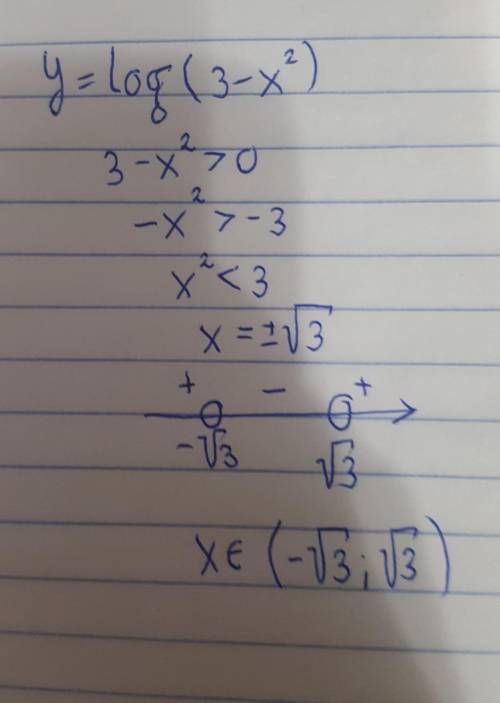 y = log(3 - x²)
3 - x² > 0
-x² > -3
x² < 3
x = ±√3
+ - +
-√3 √3
x ∈ (-√3; √3)